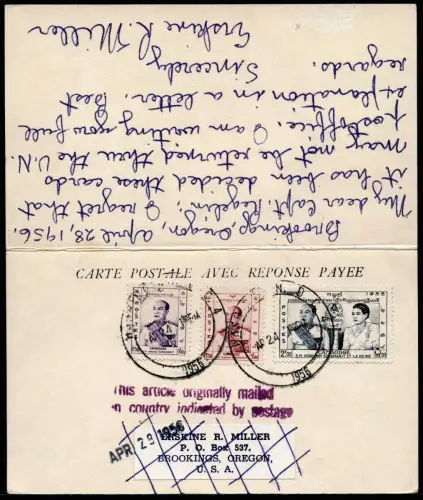 Brookings, Oregon, April 28, 1956.
My dear Capt. I regret that
it has been decided these cards
may not be returned thru the U.N.
postoffice. I am writing you full
explanation in a letter. Best
regards.
Sincerely
Erskine R. Miller
CARTE POSTALE AVEC REPONSE PAYEE
1956
1956
1955
CAMBODGE
This article originally mailed
in country indicated by postage
APR 28 1956
ERSKINE R. MILLER
P. O. Box 537,
BROOKINGS, OREGON,
U. S. A.